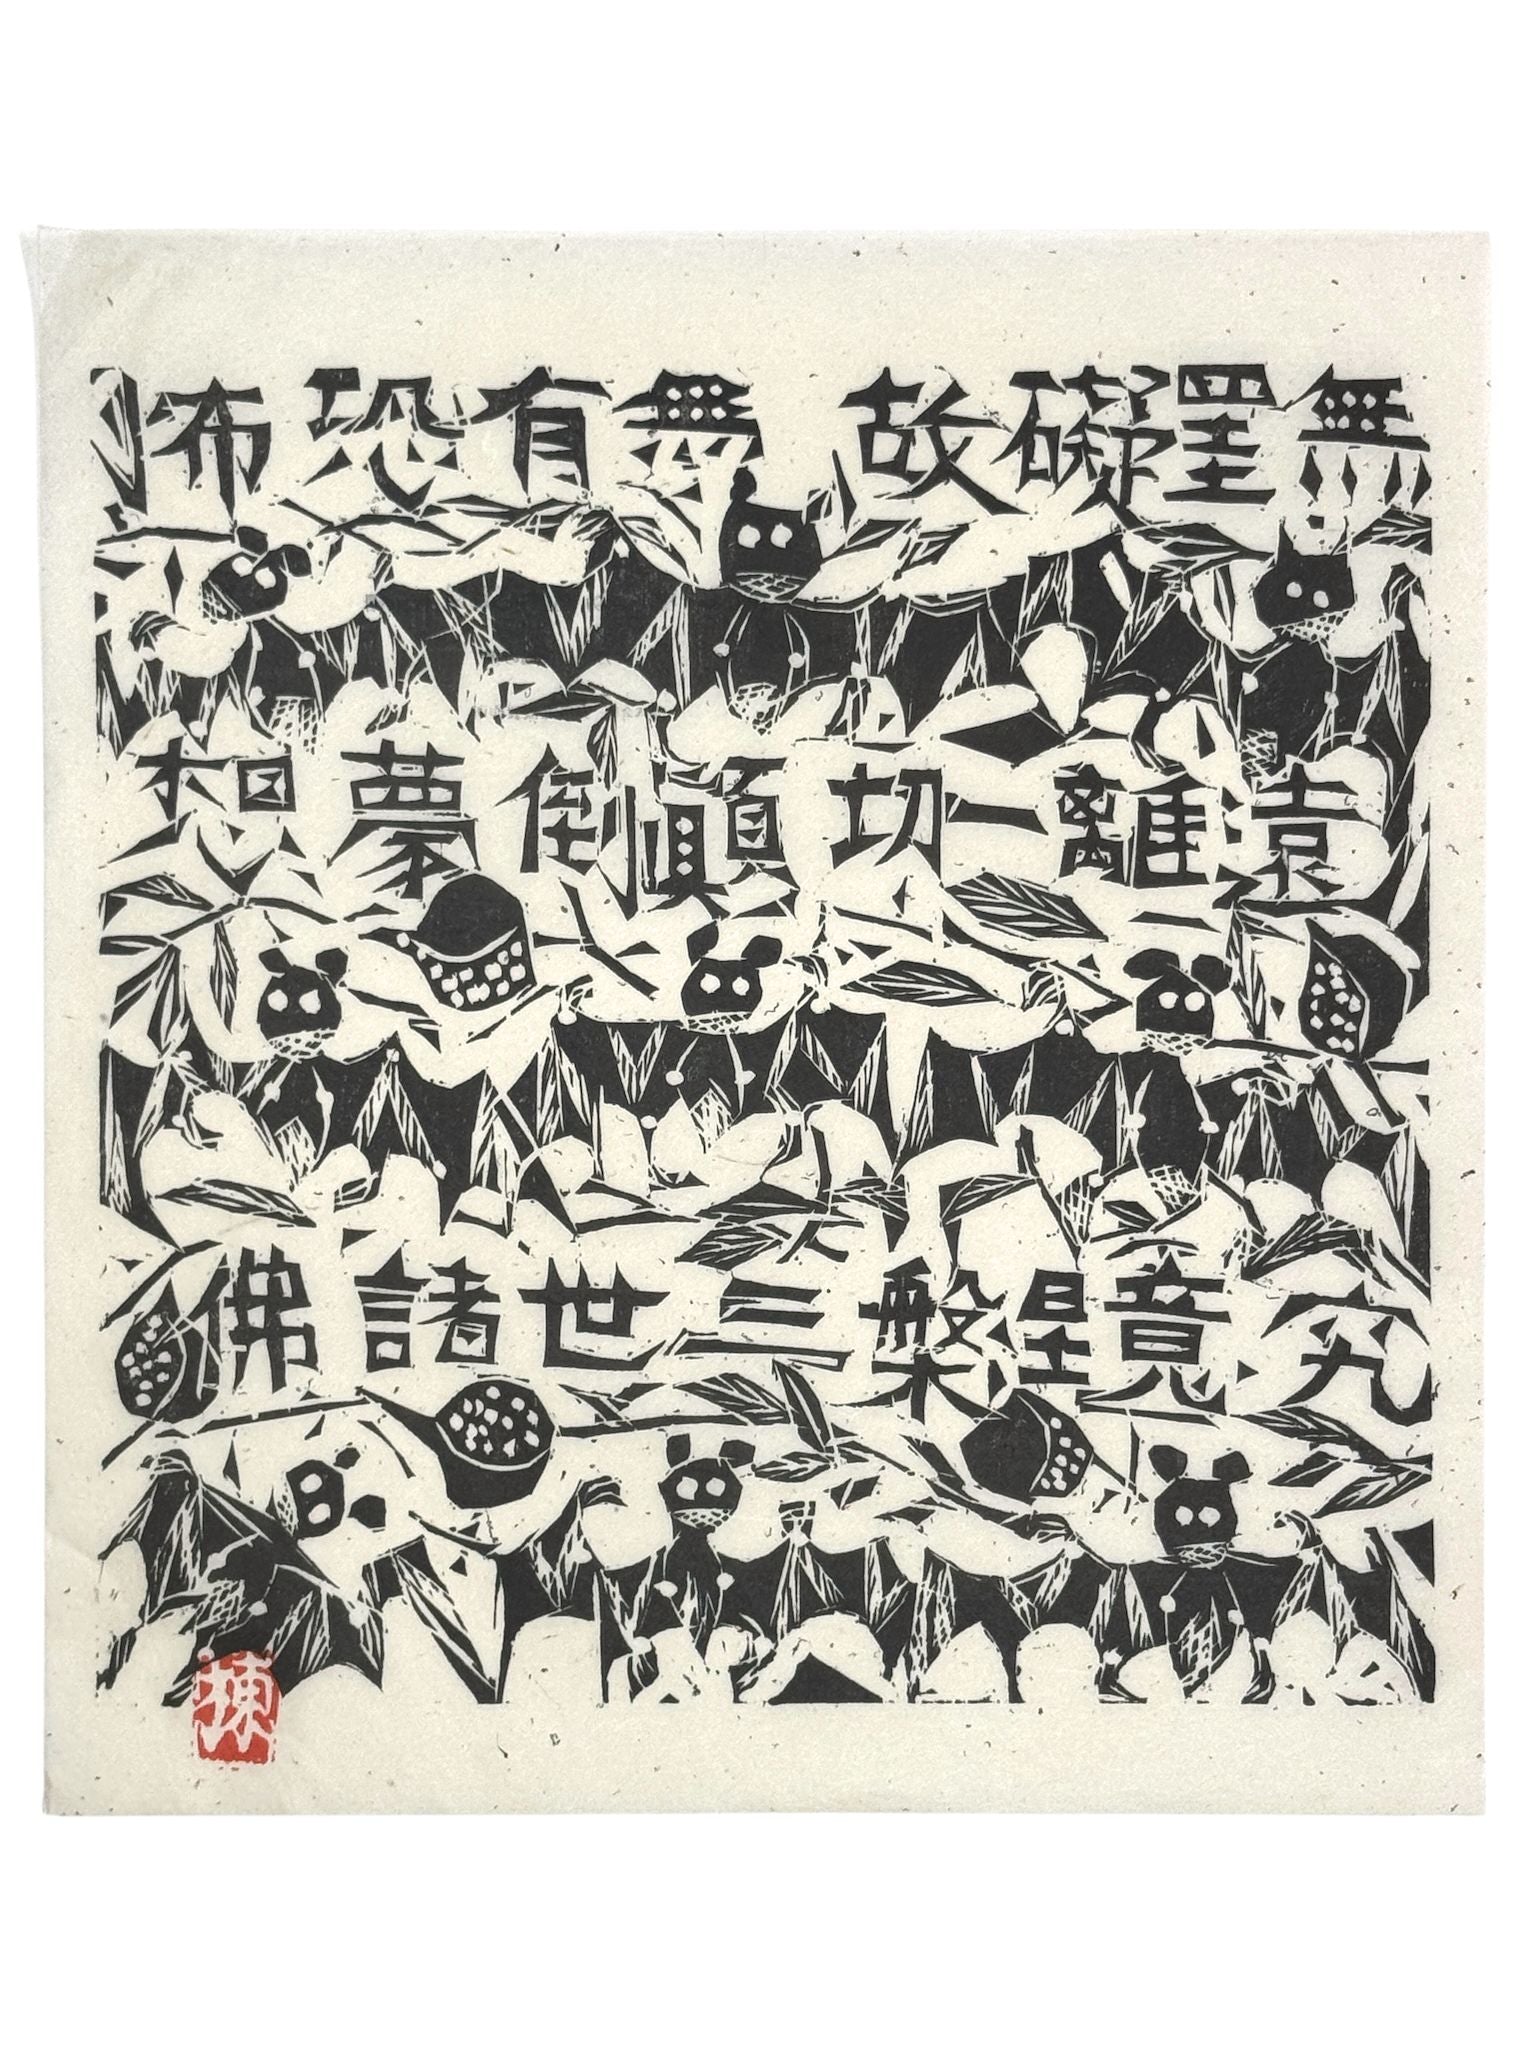 無罣礙故 無有恐怖
遠離一切顚倒夢想
究竟涅槃三世諸佛